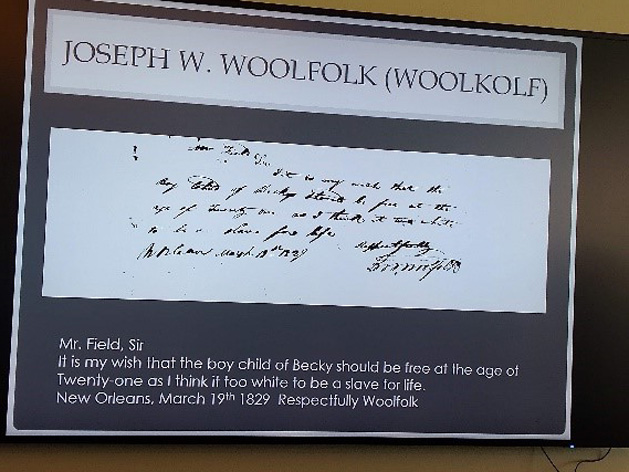 JOSEPH W. WOOLFOLK (WOOLKOLF)
Mr Field Sir
It is my wish that the
boy Child of Becky should be free at the
age of Twenty one as I think it too white
to be a slave for life
Respectfully
N Orleans March 19th 1829
Mr. Field, Sir
It is my wish that the boy child of Becky should be free at the age of
Twenty-one as I think it too white to be a slave for life.
New Orleans, March 19th 1829 Respectfully Woolfolk